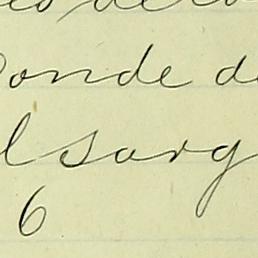 onde de
l sarg
6